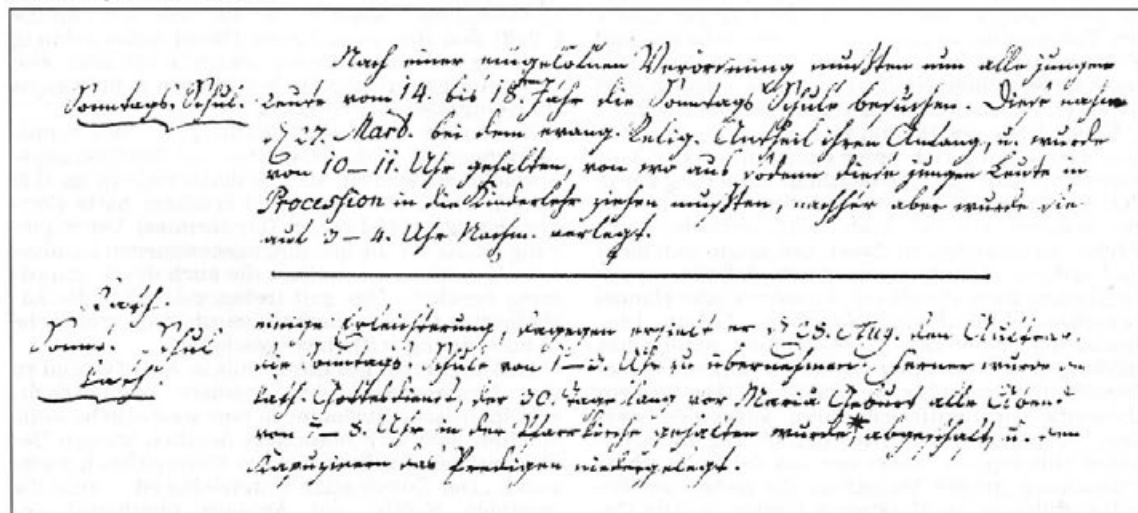 Nach einer eingelofnen Verordnung mußten nun alle junger
Sonntags. Schul. Leute vom 14. bis 18. Jahr die Sonntags Schule besuchen. Diese nahm
27. Mart. bei dem evang. Relig. Antheil ihren Anfang, u. wurde
von 10 – 11. Uhr gehalten, worauf aus sodenn diese jungen Leute in
Procession in die Kinderlehr ziehen mußten, nachhin aber wurde sie
auf 3 – 4 Uhr verlegt.
Kath.
Sonnt. Schul einige Erleichterung. Dagegen erhielt er 28. Aug. den
Kath. die Sonntags Schule von 1 – 2. Uhr zu übernehmen. Ferner wurde d.
kath. Gottesdienst, der 30. Tage lang vor Mariä Geburt alle Abend
8. Uhr in der Pfarrkirche gehalten wurde * abgeschaft, u. den
Kapuzinern das Predigen niedergelegt.